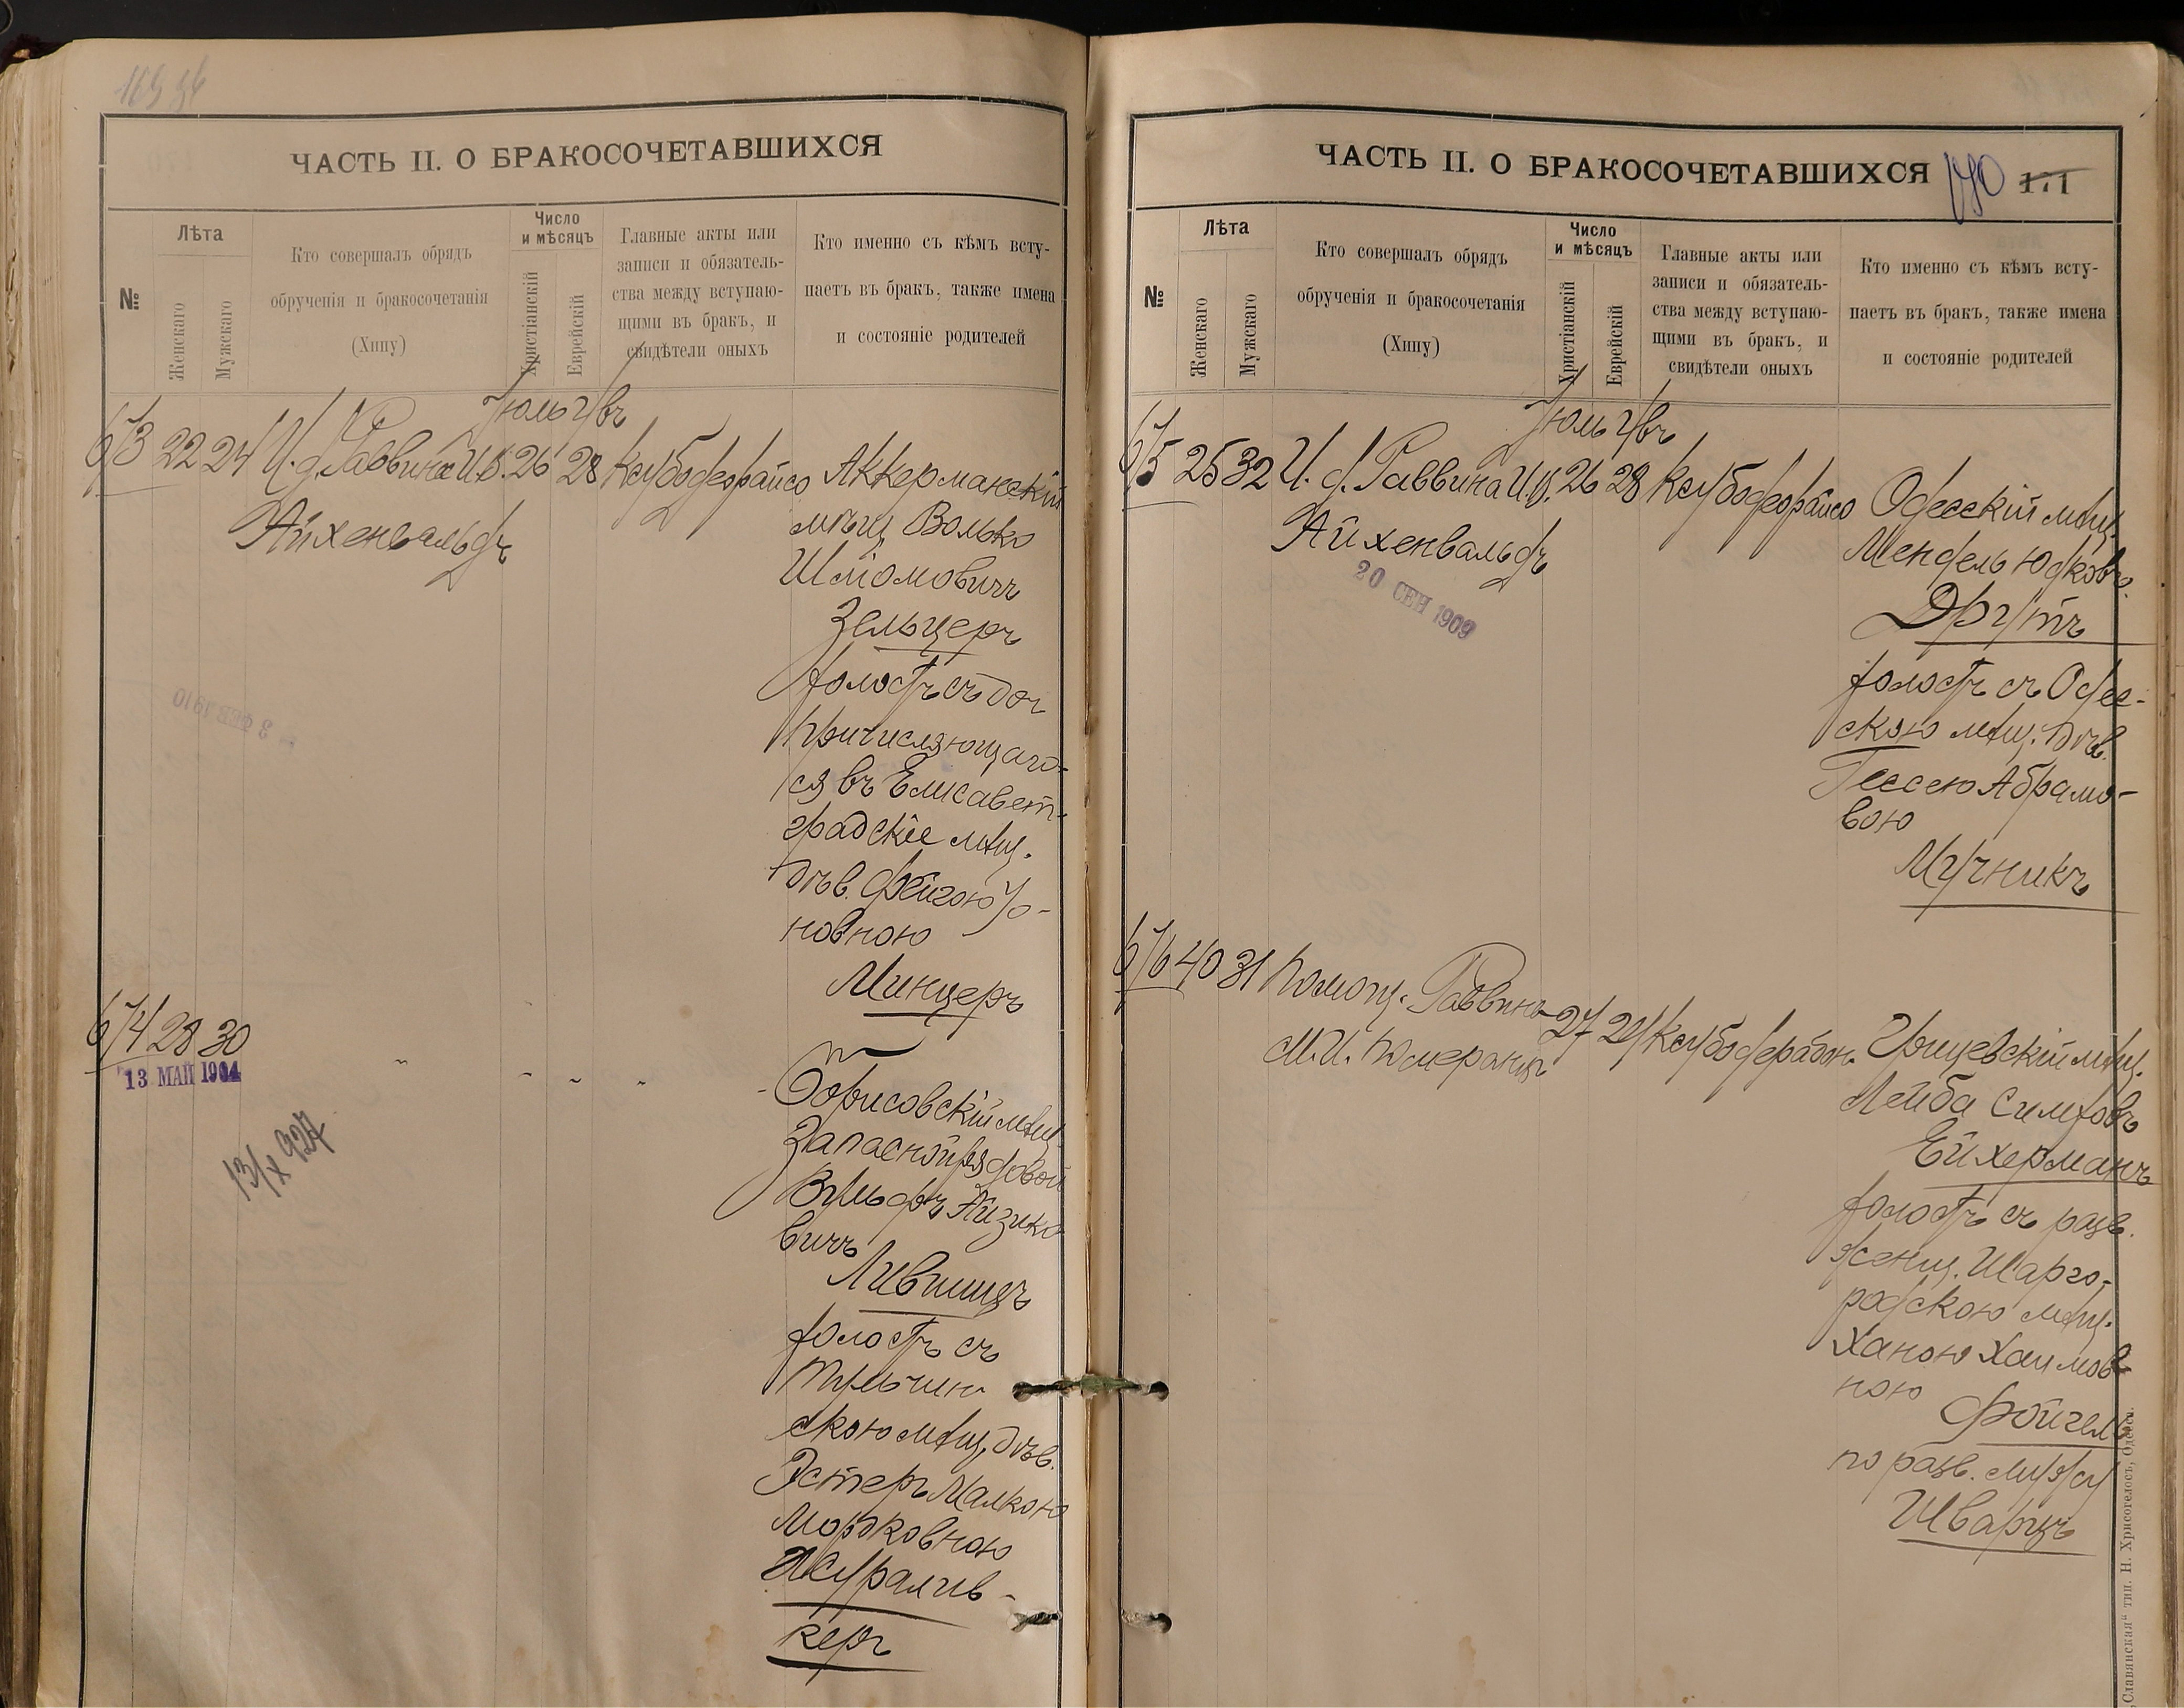 ЧАСТЬ II. О БРАКОСОЧЕТАВШИХСЯ
№
Лѣта
Женскаго
Мужскаго
Кто совершалъ обрядъ
обрученія и бракосочетанія
(Хипу)
Число
и мѣсяцъ
Христіанскій
Еврейскій
Главные акты или
записи и обязатель-
ства между вступаю-
щими въ бракъ, и
свидѣтели оныхъ
Кто именно съ кѣмъ всту-
паетъ въ бракъ, также имена
и состояніе родителей
673 22 24 И. д. Раввина И.В. 26 28
Айхенвальдъ
Аккерманскій
мѣщ Волько
Шлiомовичъ
Зельцеръ
холостъ съ доч
причисляющаго-
ся въ Елисавет-
градскіе мѣщ.
дѣв. Фейгою
новною
Минцеръ
674 28 30
13 МАЙ 1904
13/X 927
3 ФЕВ 1910
Борисовскій мѣщ
Запасной рядовой
Вульфъ Айзико
вичъ
Лившицъ
холостъ съ
Тульчин
скою мѣщ. дѣв.
Эстеръ Малкою
Мордковною
Журалив-
керъ
ЧАСТЬ II. О БРАКОСОЧЕТАВШИХСЯ
170 171
№
Лѣта
Женскаго
Мужскаго
Кто совершалъ обрядъ
обрученія и бракосочетанія
(Хипу)
Число
и мѣсяцъ
Христіанскій
Еврейскій
Главные акты или
записи и обязатель-
ства между вступаю-
щими въ бракъ, и
свидѣтели оныхъ
Кто именно съ кѣмъ всту-
паетъ въ бракъ, также имена
и состояніе родителей
675 25 32 И. д. Раввина И.В. 26 28
Айхенвальдъ
20 СЕН 1909
Одесскій мѣщ.
Мендель Юдковъ
Друтъ
холостъ съ Одес-
скою мѣщ. дѣв.
Гессею Абрамо-
вою
Мучникъ
676 40 31 Помощ. Раввина 27 29
М.И. Померанцъ
Грицевскій мѣщ.
Лейба Симховъ
Ейхерманъ
холостъ съ разв.
женщ. Шарго-
родскою мѣщ.
Ханою Хаимов-
ною
Фойгель
по разв. мужу
Шварцъ
„Славянская“ тип. Н. Хрисогелосъ, Одесса.